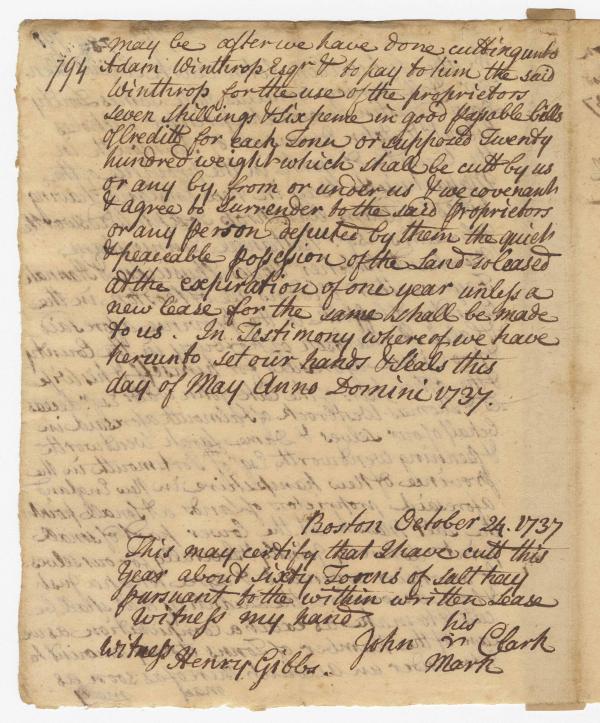 794
may be after we have done cutting unto
Adam Winthrop Esqr & to pay to him the said
Winthrop for the use of the proprietors
seven shillings & sixpence in good passable bills
of Creditt for each Tonn or supposed Twenty
hundred weight which shall be cutt by us
or any by, from or under us & we covenant
& agree to Surrender to the said Proprietors
or any Person deputed by them the quiet
& peaceable Possession of the Land so Leased
at the expiration of one year unless a
new lease for the same shall be made
to us. In Testimony whereof we have
hereunto set our hands & Seals this
day of May Anno Domini 1737.
Boston October 24. 1737
This may certify that I have cutt this
Year about sixty Tonns of salt hay
pursuant to the within written Lease
Witness my hand his
Witness John Clark
Henry Gibbs. Mark